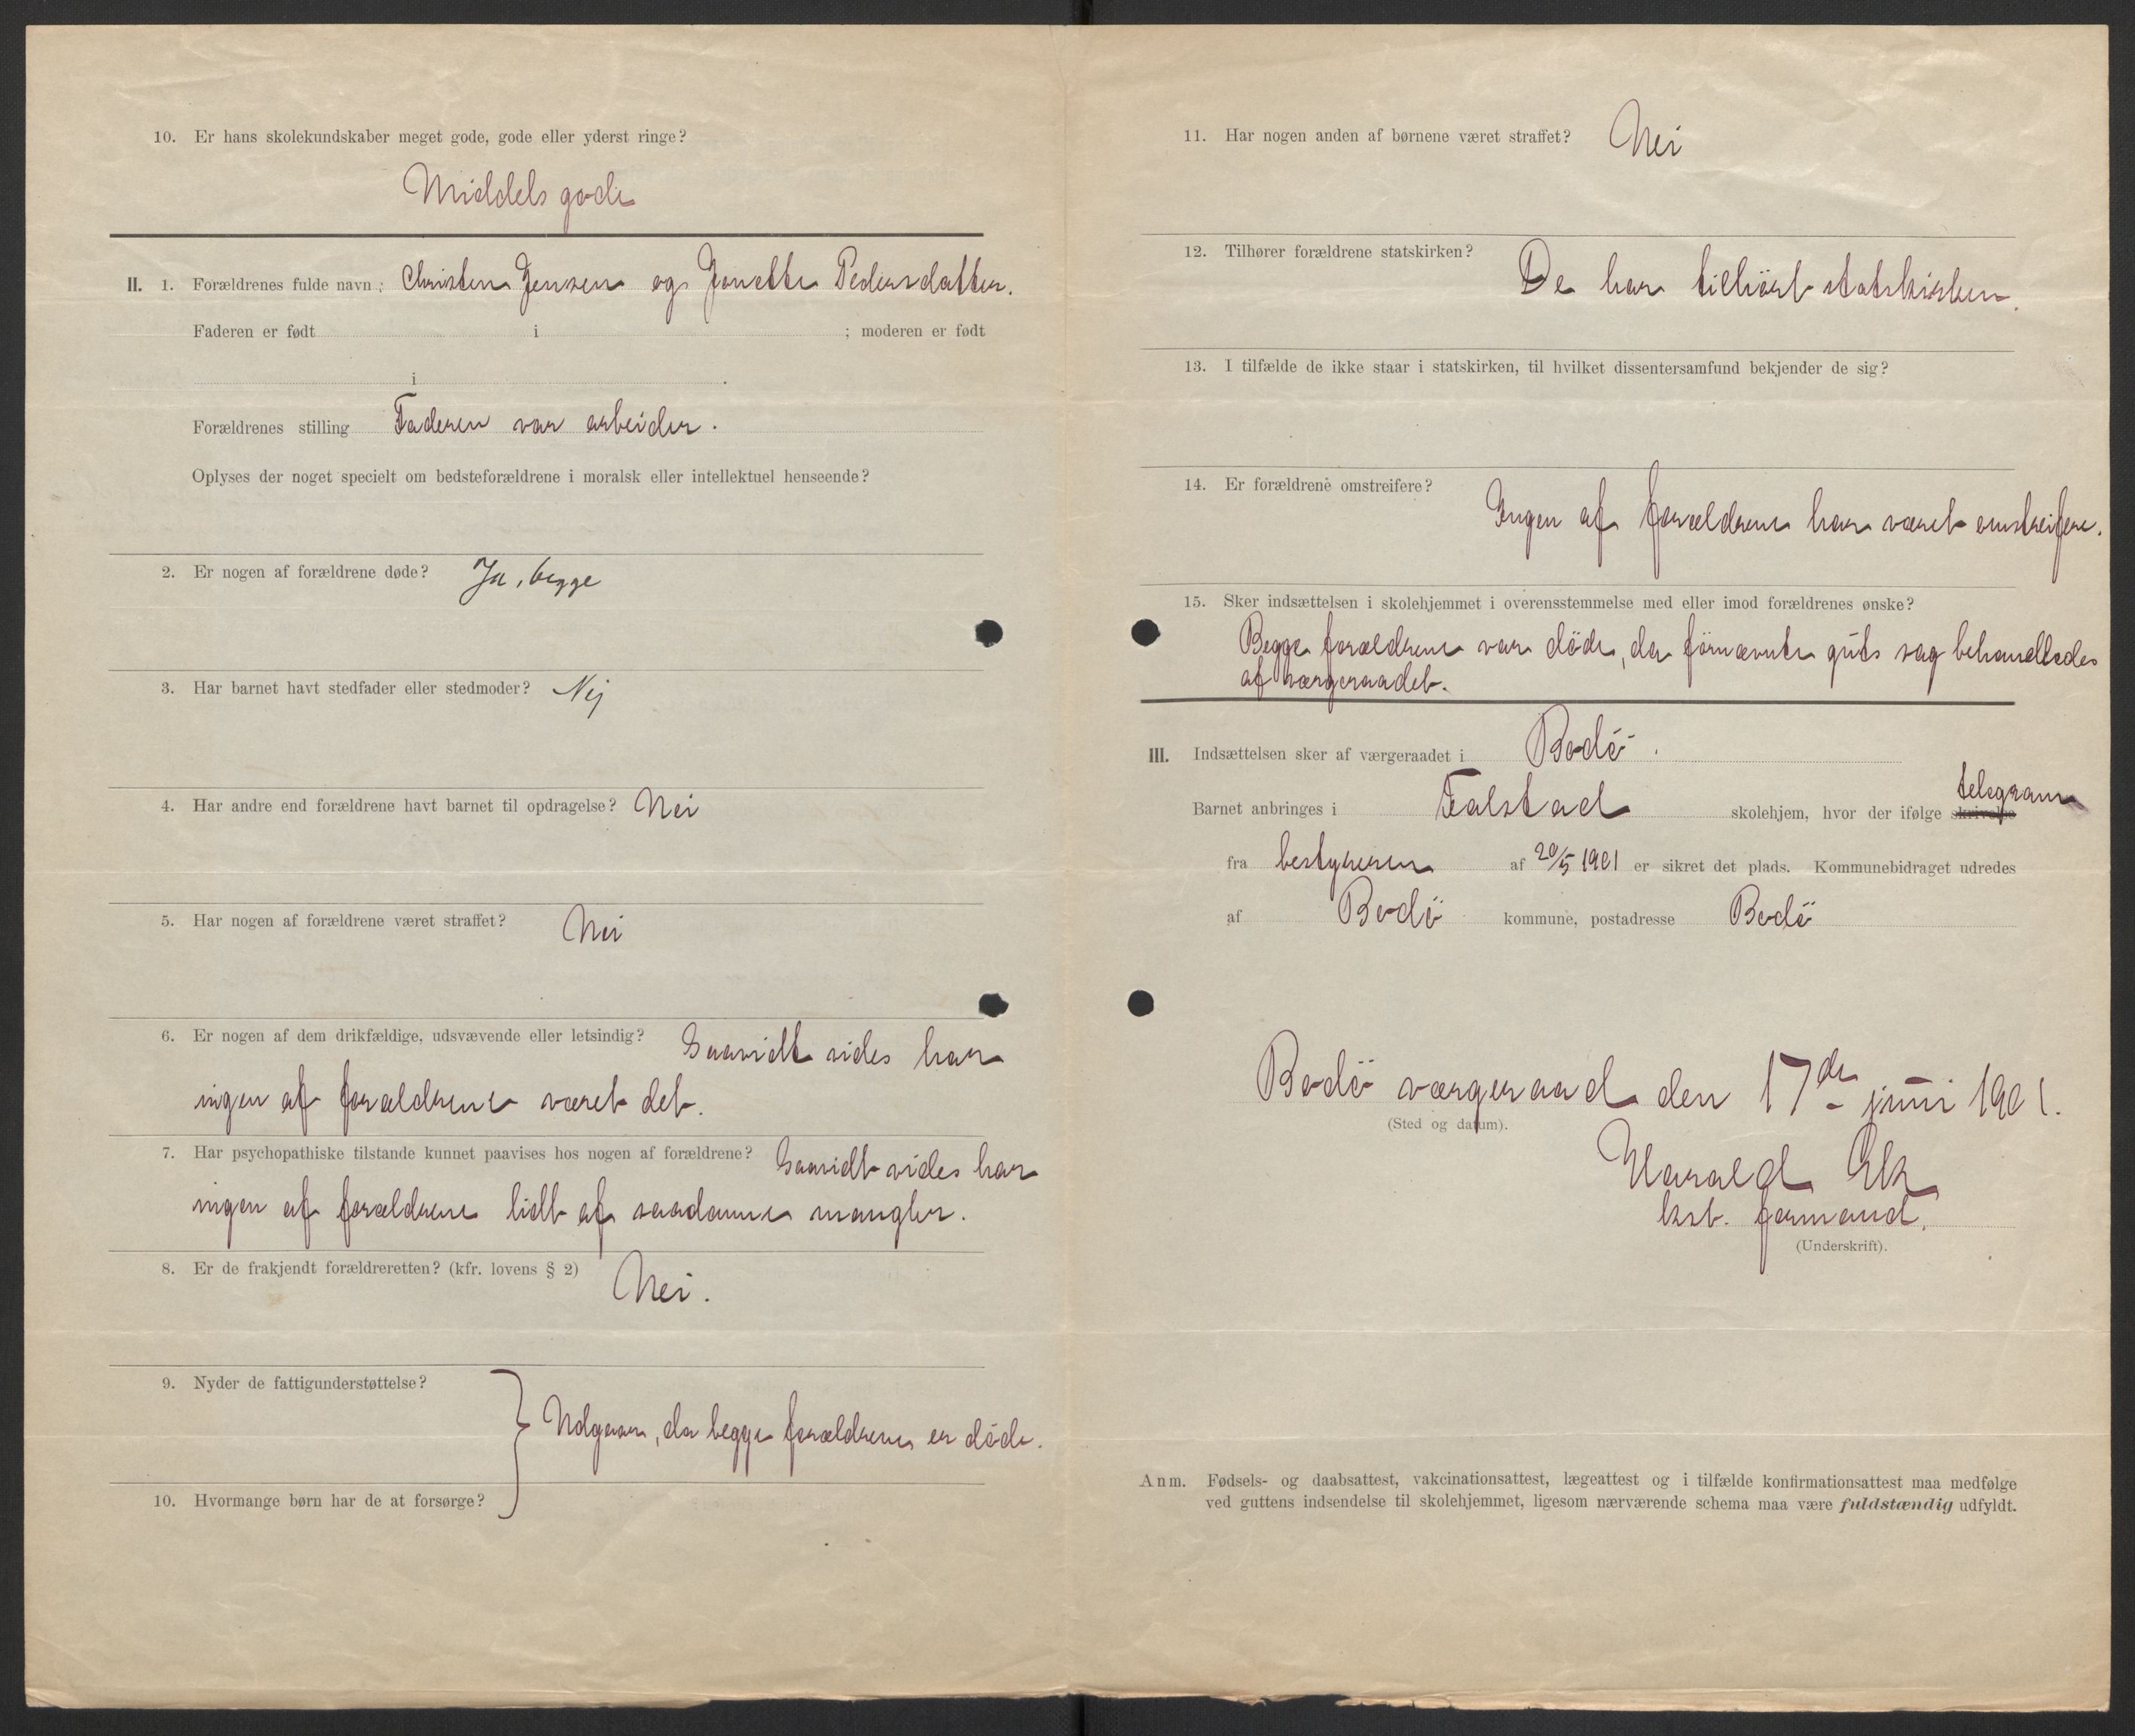 10. Er hans skolekundskaber meget gode, gode eller yderst ringe?
Middels gode
II. 1. Forældrenes fulde navn: Christen Jensen og Jonette Pedersdatter.
Faderen er født i ; moderen er født
i .
Forældrenes stilling Faderen var arbeider.
Oplyses der noget specielt om bedsteforældrene i moralsk eller intellektuel henseende?
2. Er nogen af forældrene døde? Ja, begge
3. Har barnet havt stedfader eller stedmoder? Nej
4. Har andre end forældrene havt barnet til opdragelse? Nei
5. Har nogen af forældrene været straffet? Nei
6. Er nogen af dem drikfældige, udsvævende eller letsindig? Saavidt vides har
ingen af forældrene været det.
7. Har psychopathiske tilstande kunnet paavises hos nogen af forældrene? Saavidt vides har
ingen af forældrene lidt af saadanne mangler.
8. Er de frakjendt forældreretten? (kfr. lovens § 2) Nei.
9. Nyder de fattigunderstøttelse?
Udgaar, da begge forældrene er döde.
10. Hvormange børn har de at forsørge?
11. Har nogen anden af børnene været straffet? Nei
12. Tilhører forældrene statskirken? De har tilhört statskirken.
13. I tilfælde de ikke staar i statskirken, til hvilket dissentersamfund bekjender de sig?
14. Er forældrene omstreifere? Ingen af forældrene har været omstreifere.
15. Sker indsættelsen i skolehjemmet i overensstemmelse med eller imod forældrenes ønske?
Begge forældrene var döde, da förnævnte guts sag behandledes
af værgeraadet.
III. Indsættelsen sker af værgeraadet i Bodö.
telegram
Barnet anbringes i Falstad skolehjem, hvor der ifølge skrivelse
fra bestyreren af 20/5 1901 er sikret det plads. Kommunebidraget udredes
af Bodö kommune, postadresse Bodö
Bodö værgeraad den 17de juni 1901.
(Sted og datum).
Harald Ek
kst. formand.
(Underskrift).
Anm. Fødsels- og daabsattest, vakcinationsattest, lægeattest og i tilfælde konfirmationsattest maa medfølge
ved guttens indsendelse til skolehjemmet, ligesom nærværende schema maa være fuldstændig udfyldt.